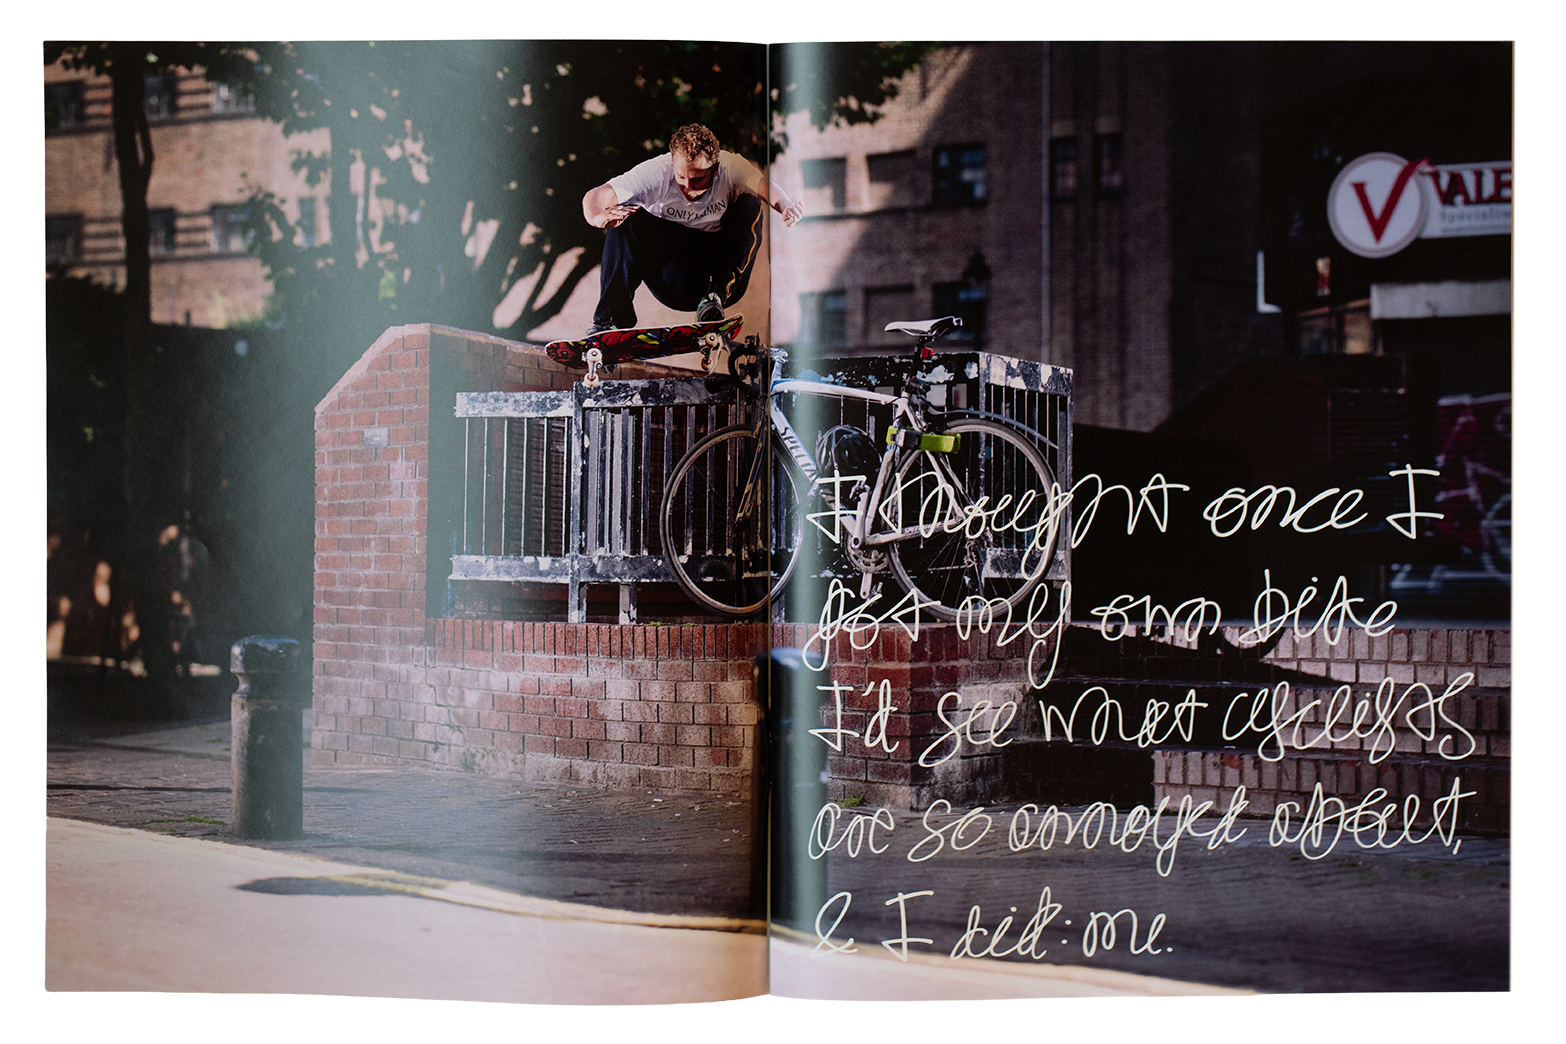 ONLY HUMAN
V VALE
Specialis
SPECIAL
I thought once I
got my own bike
I'd see what cyclists
are so annoyed about,
& I did: me.